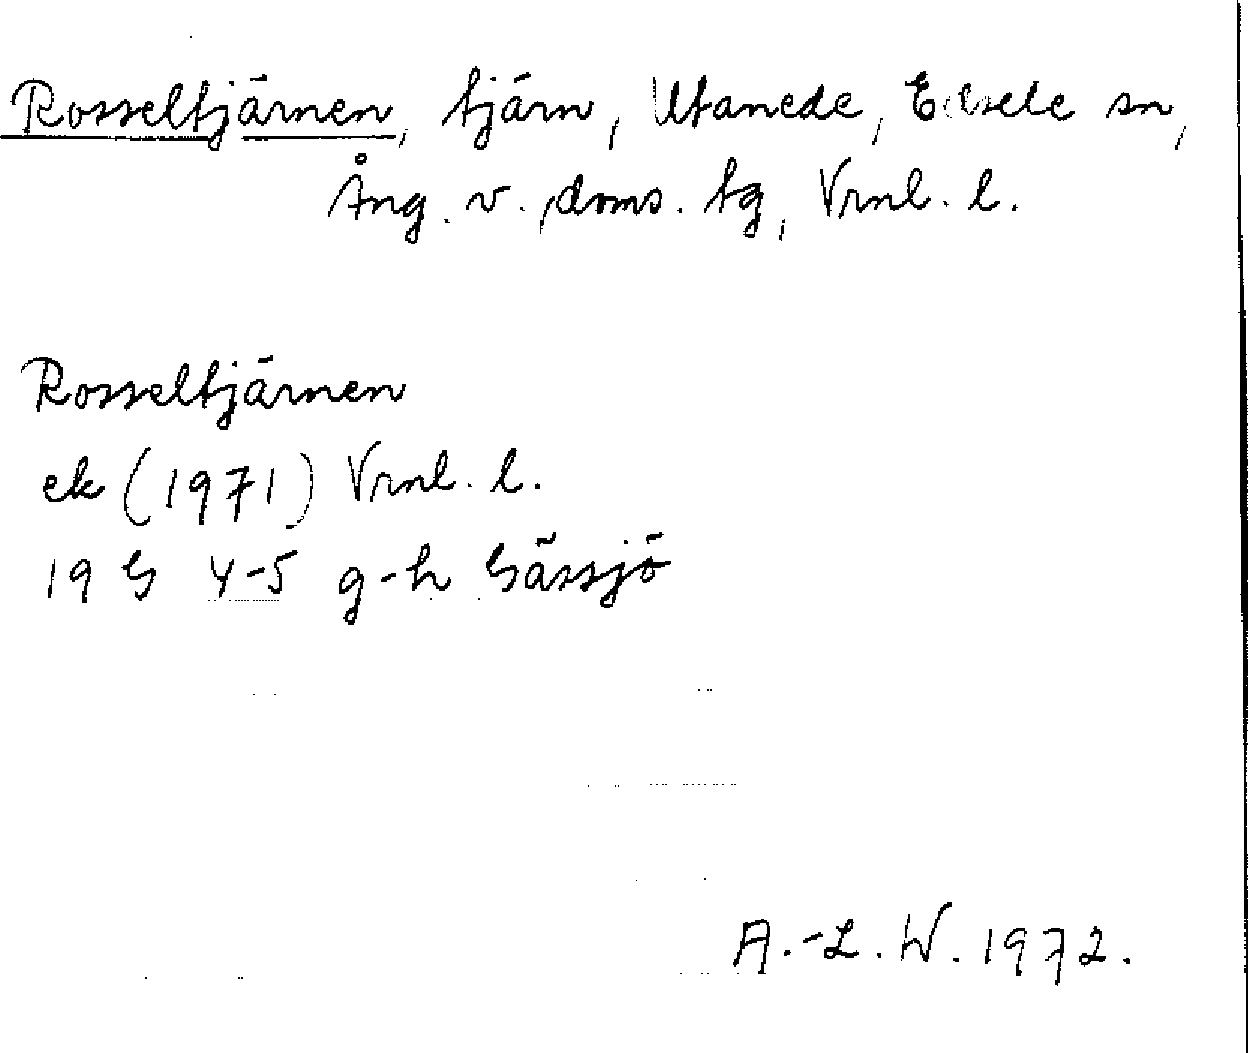 Rosseltjärnen, tjärn, Utanede, Edsele sn,
Ång. v. doms. tg, Vrnl. l.
Rosseltjärnen
ek (1971) Vrnl. l.
19 G 4-5 g-h Gässjö
A.-L. W. 1972.